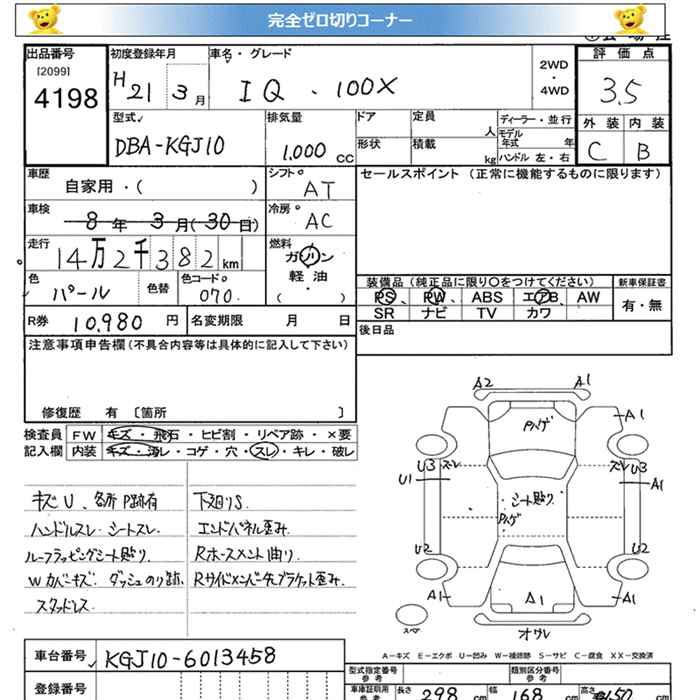 完全ゼロ切りコーナー
出品番号
[2099]
4198
初度登録年月
H21 3月
車名・グレード
IQ ・ 100X
2WD
・
4WD
評価点
3.5
型式
DBA-KGJ10
排気量
1.000 CC
ドア
形状
定員
人
積載
kg
ディーラー・並行
モデル年式 年
ハンドル 左・右
外装 内装
C B
車歴
自家用・( )
シフト
AT
セールスポイント (正常に機能するものに限ります)
車検
8年 3月(30日)
冷房
AC
走行
14万2千382km
燃料
ガソリン
軽油
・
( )
色
パール
色替
色コード
070
装備品 (純正品に限り〇をつけてください)
PS、PW、ABS エアB AW
SR ナビ TV カワ
新車保証書
有・無
R券 10,980 円
名変期限 月 日
後日品
注意事項申告欄 (不具合内容等は具体的に記入して下さい)
修復歴 有 〔箇所 〕
検査員 FW キズ・飛石・ヒビ割・リペア跡・×要
記入欄 内装 キズ・濁レ・コゲ・穴・スレ・キレ・破レ
キズU、各所P跡有
ハンドルスレ・シートスレ
ルーフラッピングシート貼り
Wカバーキズ・ダッシュのり跡
スタッドレス
下廻りS
エンドパネル歪み
Rホースメント曲り
Rサイドメンバー先ブラケット歪み
A2 A1
Pハゲ
A1
U3 スレ
スレ U3
U1
A1
シート貼り
Pハゲ
U2
U2
A1
A1
A1
スペア
オサレ
A－キズ E－エクボ U－凹み W－補修跡 S－サビ C－腐食 XX－交換済
車台番号 KGJ10-6013458
登録番号
型式指定番号 参考
類別区分番号 参考
車庫証明用 参考
長さ 298 cm 幅 168 cm 高さ 150 cm